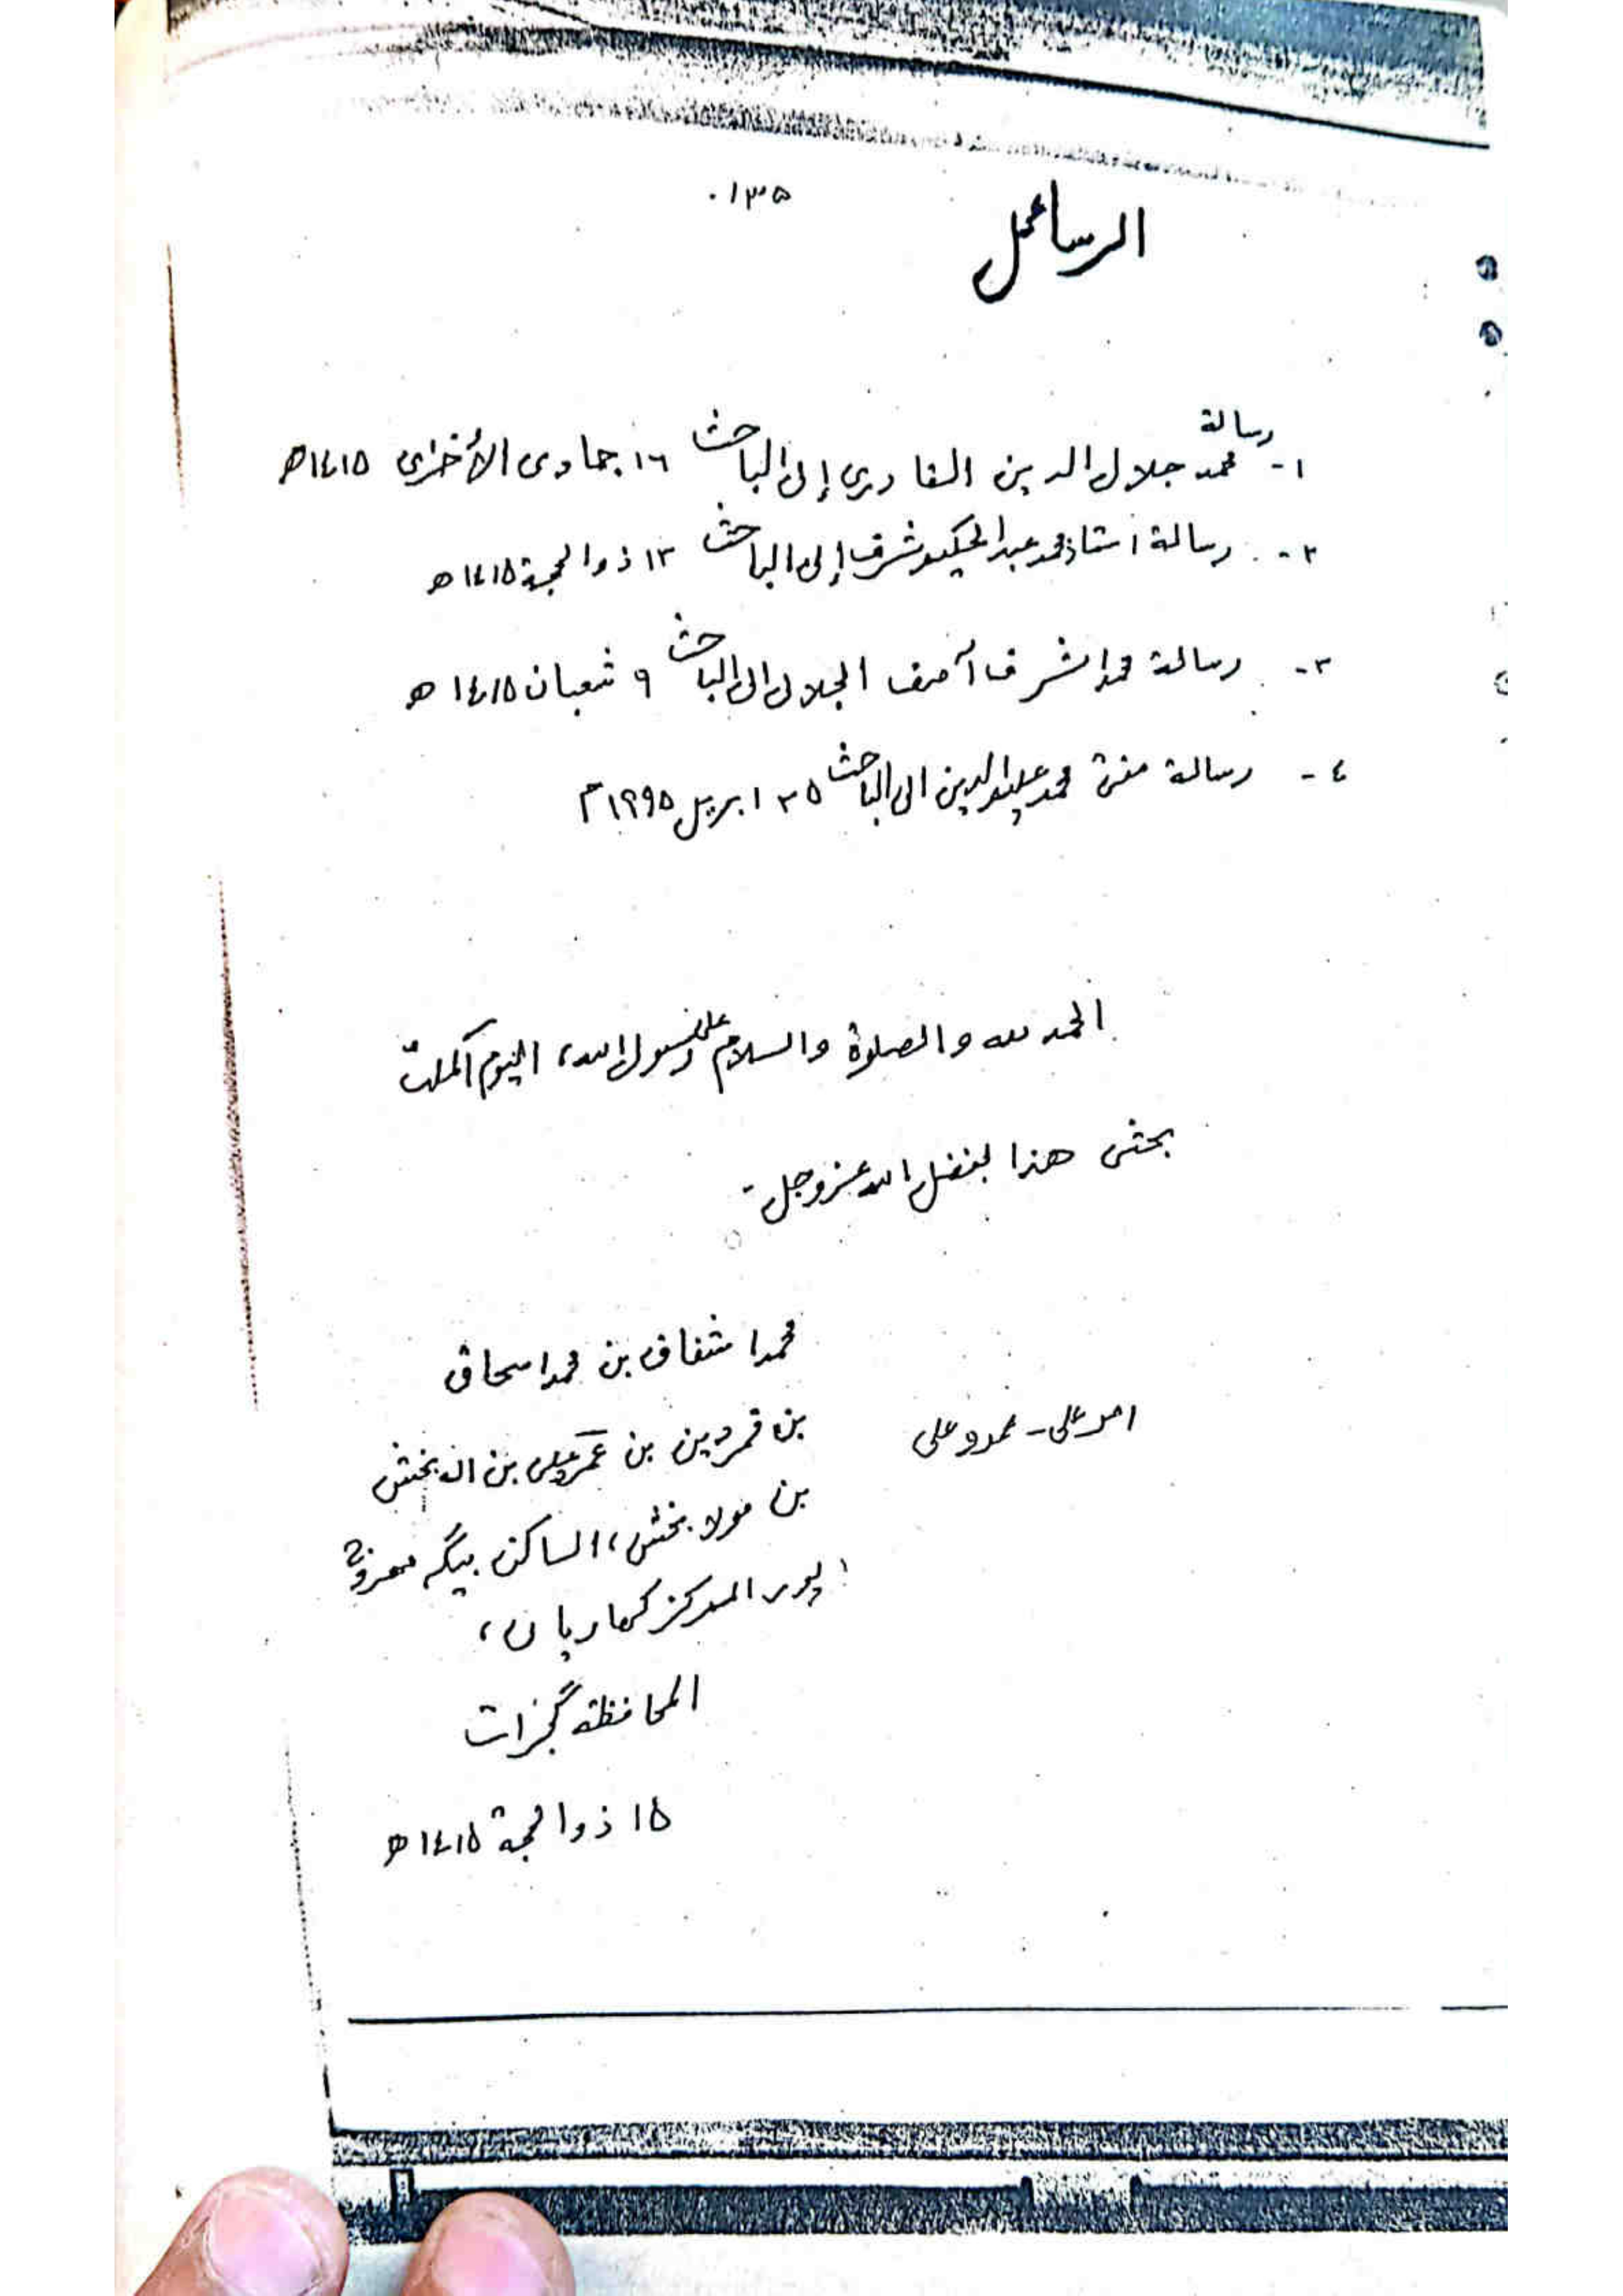 ١٣٥
الرسائل
١- رسالة محمد جلال الدين القادري إلى الباحث ١٦ جمادى الأخرى ١٤١٥ھ
٢- رسالة استاذ محمد عبد الحكيم شرف إلى الباحث ١٣ ذوالحجة ١٤١٥ھ
٣- رسالة محمد اشرف آصف الجلالى الى الباحث ٩ شعبان ١٤١٥ھ
٤- رسالة مفتى محمد عليم الدين الى الباحث ٢٥ ابريل ١٩٩٥م
الحمد لله والصلوة والسلام على رسول الله، اليوم أكملت
بحثى هذا بفضل الله عزوجل-
محمد اشفاق بن محمد اسحاق
بن قمر دين بن عمر على بن الله بخش
احمد على - محمد و على
بن مولا بخش، الساكن بيگه
پور المركز كهاريان،
المحافظة گجرات
١٥ ذوالحجة ١٤١٥ھ